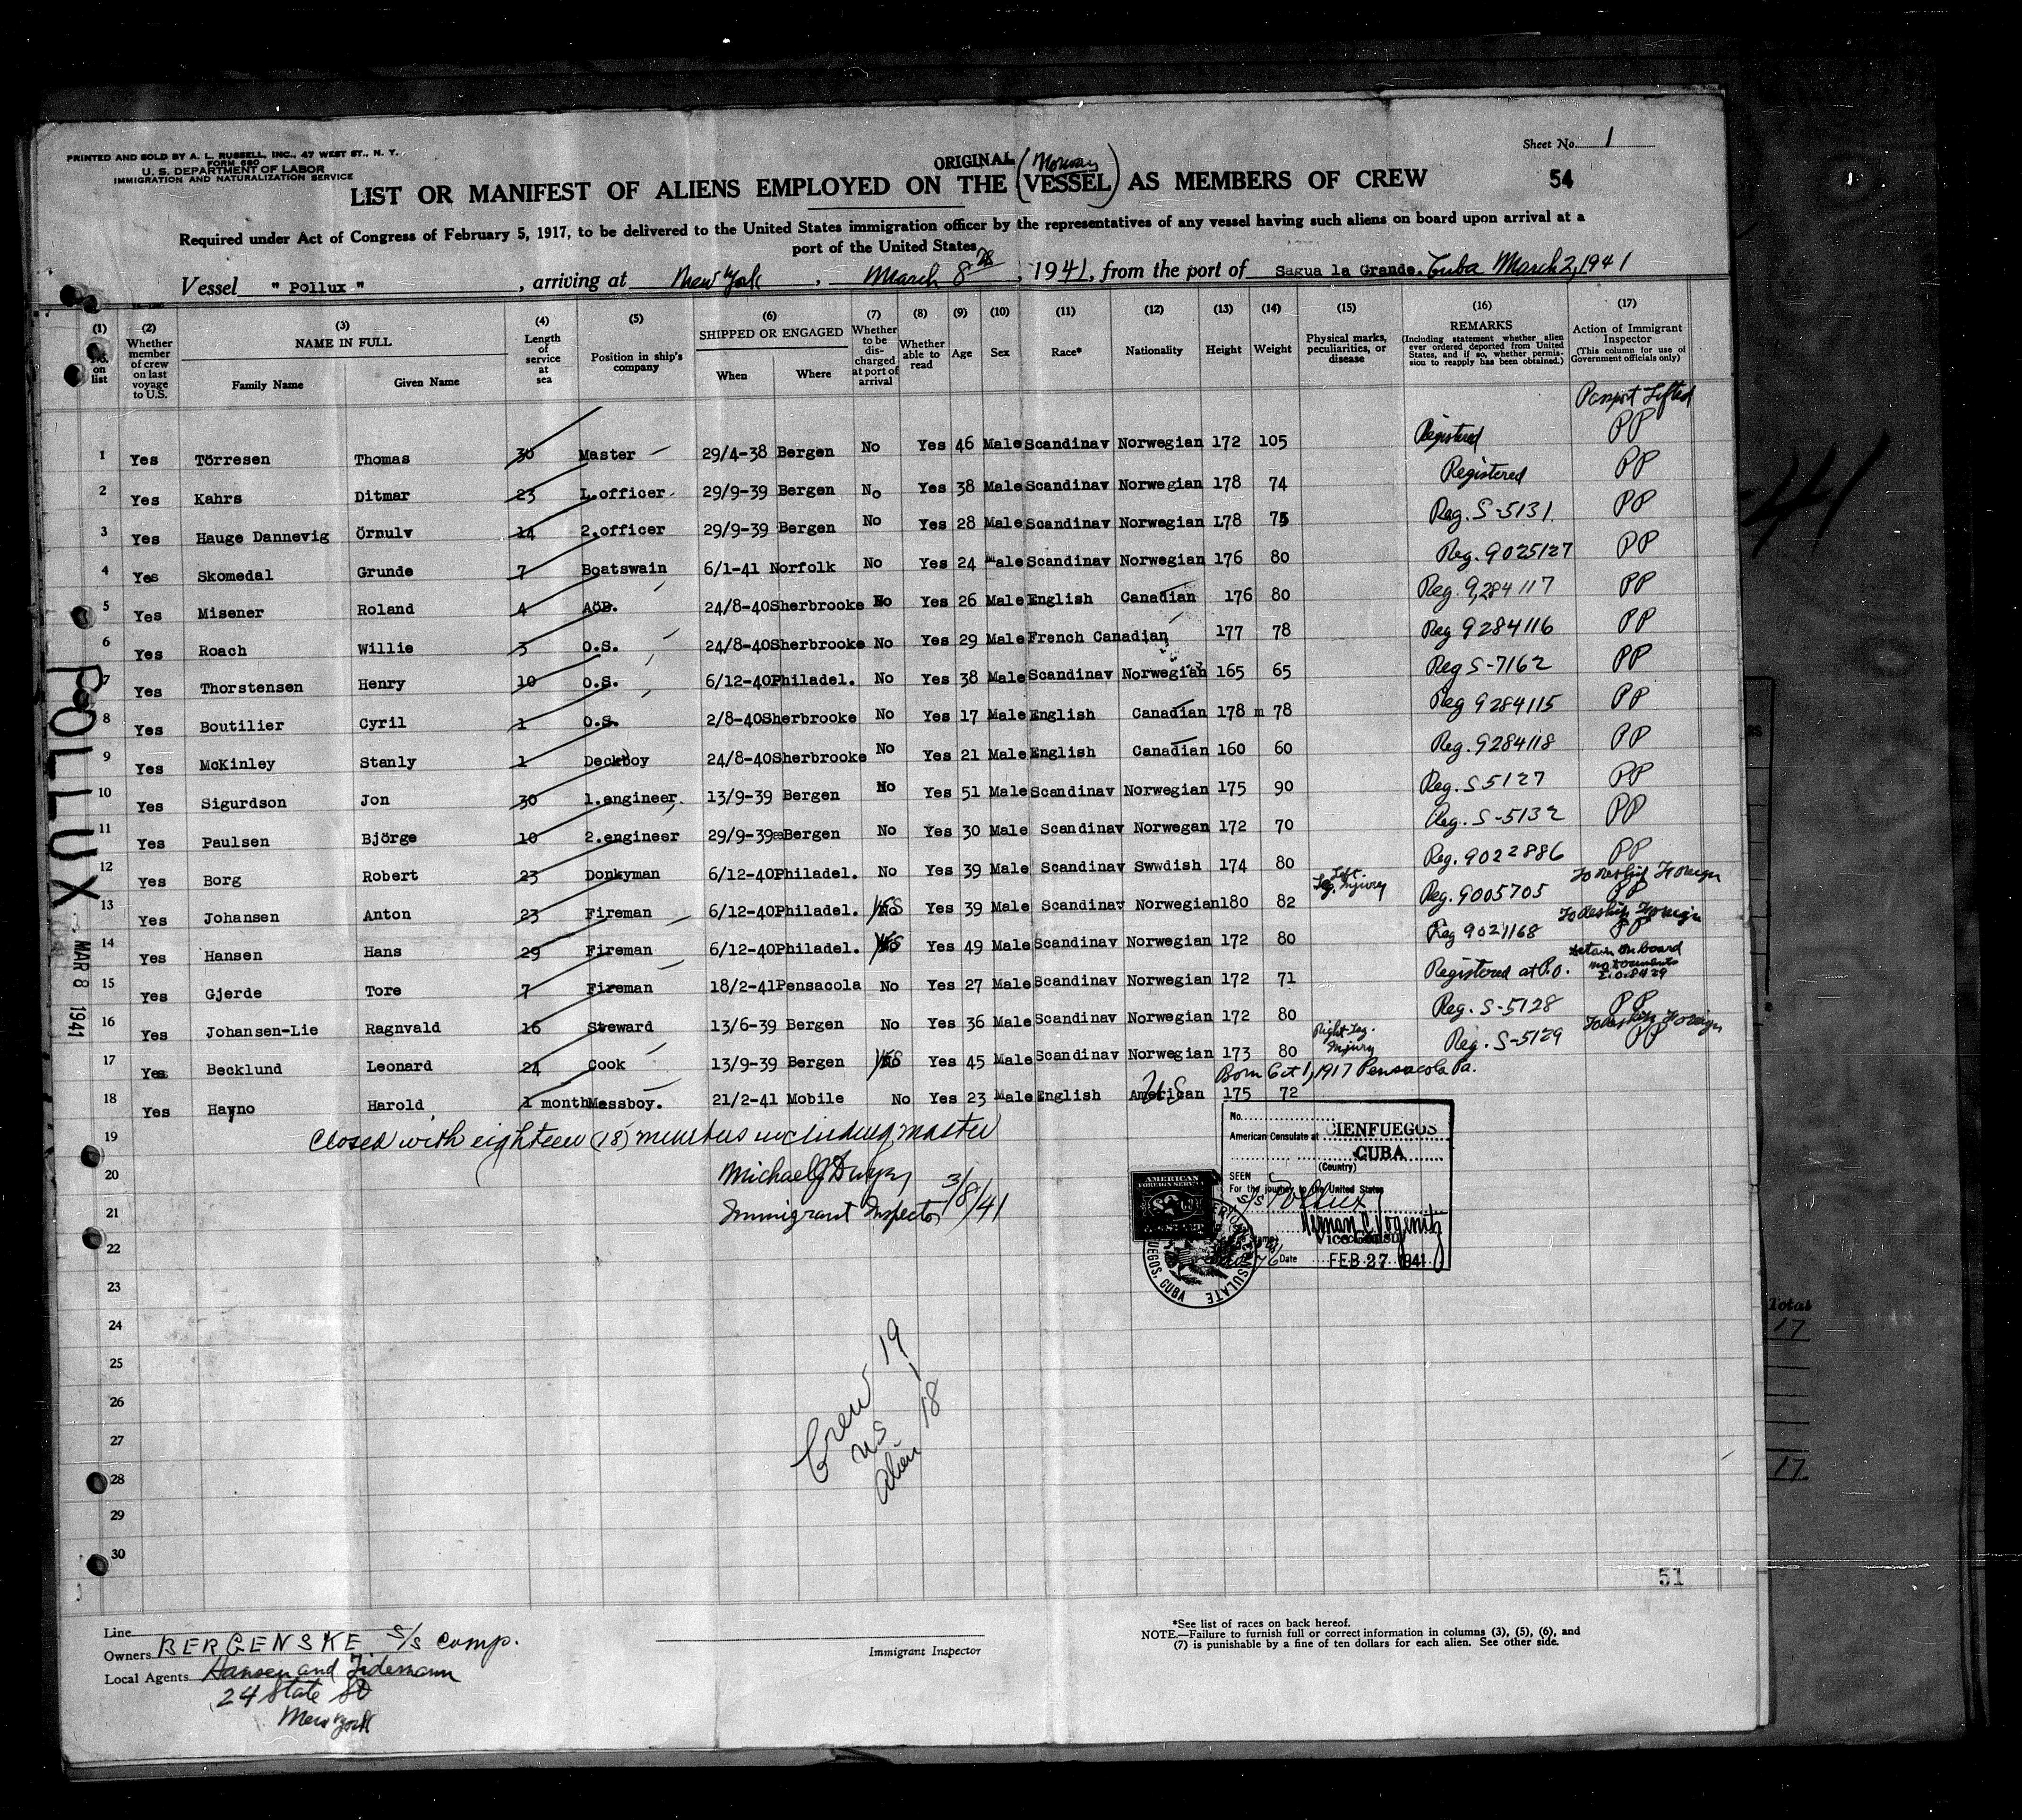 PRINTED AND SOLD BY A. L. RUSSELL, INC., 47 WEST ST., N. Y.
FORM 680
U. S. DEPARTMENT OF LABOR
IMMIGRATION AND NATURALIZATION SERVICE
Sheet No. 1
ORIGINAL (Norway
LIST OR MANIFEST OF ALIENS EMPLOYED ON THE (VESSEL) AS MEMBERS OF CREW
54
Required under Act of Congress of February 5, 1917, to be delivered to the United States immigration officer by the representatives of any vessel having such aliens on board upon arrival at a
port of the United States
Vessel " Pollux ", arriving at New York, March 8th, 1941, from the port of Sagua la Grande. Cuba March 2, 1941
(1) No. on list
(2) Whether member of crew on last voyage to U.S.
(3) NAME IN FULL Family Name Given Name
(4) Length of service at sea
(5) Position in ship's company
(6) SHIPPED OR ENGAGED When Where
(7) Whether to be discharged at port of arrival
(8) Whether able to read
(9) Age
(10) Sex
(11) Race*
(12) Nationality
(13) Height
(14) Weight
(15) Physical marks, peculiarities, or disease
(16) REMARKS (Including statement whether alien ever ordered deported from United States, and if so, whether permission to reapply has been obtained.)
(17) Action of Immigrant Inspector (This column for use of Government officials only)
Passport Lifted
1 Yes Törresen Thomas 30 Master 29/4-38 Bergen No Yes 46 Male Scandinav Norwegian 172 105 Registered PP
2 Yes Kahrs Ditmar 23 I.officer 29/9-39 Bergen No Yes 38 Male Scandinav Norwegian 178 74 Registered PP
3 Yes Hauge Dannevig Örnulv 14 2.officer 29/9-39 Bergen No Yes 28 Male Scandinav Norwegian 178 75 Reg. S-5131. PP
4 Yes Skomedal Grunde 7 Boatswain 6/1-41 Norfolk No Yes 24 Male Scandinav Norwegian 176 80 Reg. 9025127 PP
5 Yes Misener Roland 4 AöB. 24/8-40 Sherbrooke No Yes 26 Male English Canadian 176 80 Reg. 9,284117 PP
6 Yes Roach Willie 3 O.S. 24/8-40 Sherbrooke No Yes 29 Male French Canadian 177 78 Reg 9284116 PP
7 Yes Thorstensen Henry 10 O.S. 6/12-40 Philadel. No Yes 38 Male Scandinav Norwegian 165 65 Reg S-7162 PP
8 Yes Boutilier Cyril 1 O.S. 2/8-40 Sherbrooke No Yes 17 Male English Canadian 178 m 78 Reg 9284115 PP
9 Yes McKinley Stanly 1 Deckboy 24/8-40 Sherbrooke No Yes 21 Male English Canadian 160 60 Reg. 9284118 PP
10 Yes Sigurdson Jon 30 1.engineer. 13/9-39 Bergen No Yes 51 Male Scandinav Norwegian 175 90 Reg. S 5127 PP
11 Yes Paulsen Björge 10 2.engineer 29/9-39 Bergen No Yes 30 Male Scandinav Norwegan 172 70 Reg. S-5132 PP
12 Yes Borg Robert 23 Donkyman 6/12-40 Philadel. No Yes 39 Male Scandinav Swwdish 174 80 Reg. 9022886 PP
13 Yes Johansen Anton 23 Fireman 6/12-40 Philadel. No YES Yes 39 Male Scandinav Norwegian 180 82 Left. Leg. Injury Reg. 9005705 To Reship Foreign PP
14 Yes Hansen Hans 29 Fireman 6/12-40 Philadel. No YES Yes 49 Male Scandinav Norwegian 172 80 Reg 9021168 To Reship Foreign PP
15 Yes Gjerde Tore 7 Fireman 18/2-41 Pensacola No Yes 27 Male Scandinav Norwegian 172 71 Registered at P.O. Detain on board no documents E.O. 8429
16 Yes Johansen-Lie Ragnvald 16 Steward 13/6-39 Bergen No Yes 36 Male Scandinav Norwegian 172 80 Reg. S-5128 PP
17 Yes Becklund Leonard 24 Cook 13/9-39 Bergen No YES Yes 45 Male Scandinav Norwegian 173 80 Right Leg. Injury Reg. S-5129 To Reship Foreign PP
Born Oct 1, 1917 Pensacola
18 Yes Hayno Harold 1 month Messboy. 21/2-41 Mobile No Yes 23 Male English American U S 175 72
19
Closed with eighteen (18) members including master
20
Michael J Dwyer 3/8/41
21
Immigrant Inspector
22
23
24
25
26
27
28
29
30
No.
American Consulate at CIENFUEGOS
CUBA
(Country)
SEEN
For the journey to the United States
S/S Pollux
Vice Consul
Date FEB 27 1941
AMERICAN
FOREIGN SERVICE
CIENFUEGOS, CUBA
Crew 19
US 1
Alien 18
POLLUX
MAR 8 1941
51
Line
Owners BERGENSKE S/S Comp.
Local Agents Hansen and Tidemann
24 State St
New York
Immigrant Inspector
*See list of races on back hereof.
NOTE.—Failure to furnish full or correct information in columns (3), (5), (6), and
(7) is punishable by a fine of ten dollars for each alien. See other side.
-41
Total
17
17